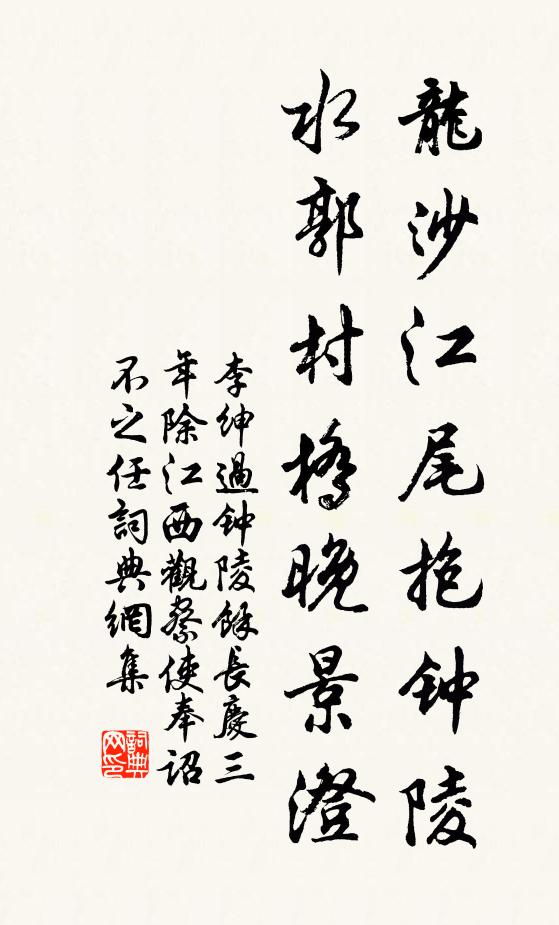 龍沙江尾抱钟陵
水郭村橋晚景澄
李紳過钟陵餘長慶三
年除江西觀察使奉詔
不之任詞典網集
詞典
网印